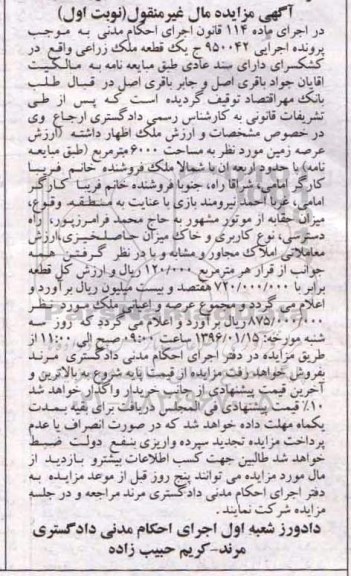 آگهی مزایده مال غیرمنقول(نوبت اول)
در اجرای ماده ۱۱۴ قانون اجرای احکام مدنی به موجب
پرونده اجرایی ۹۵۰۰۴۲ ج یک قطعه ملک زراعی واقع در
کشکسرای دارای سند عادی طبق مبایعه نامه به مالکیت
آقایان جواد باقری اصل و جابر باقری اصل در قبال طلب
بانک مهر اقتصاد توقیف گردیده است که پس از طی
تشریفات قانونی به کارشناس رسمی دادگستری ارجاع وی
در خصوص مشخصات و ارزش ملک اظهار داشته (ارزش
عرصه زمین مورد نظر به مساحت ۶۰۰۰ مترمربع (طبق مبایعه
نامه) با حدود اربعه ان با شمالا ملک فروشنده خانم فریبا
کارگر امامی، شرقا راه، جنوبا فروشنده خانم فریبا کارگر
امامی، غربا احمد نیرومند بازی با عنایت به منطقه وقوع،
میزان حقابه از موتور مشهور به حاج محمد فرامرزپور، راه
دسترسی، نوع کاربری و خاک میزان حاصلخیزی،ارزش
معاملاتی املاک مجاور و مشابه و با در نظر گرفتن همه
جوانب از قرار هر مترمربع ۱۲۰/۰۰۰ ریال و ارزش کل قطعه
برابر با ۷۲۰/۰۰۰/۰۰۰ هفتصد و بیست میلیون ریال برآورد و
اعلام می گردد و مجموع عرصه و اعیانی ملک مورد نظر
۸۷۵/۰۰۰/۰۰۰ ریال برآورد و اعلام می گردد که روز سه
شنبه مورخه: ۱۳۹۶/۰۱/۱۵ ساعت ۰۹:۰۰ صبح الی ۱۱:۰۰ از
طریق مزایده در دفتر اجرای احکام مدنی دادگستری مرند
بفروش خواهد رفت مزایده از قیمت پایه شروع به بالاترین و
آخرین قیمت پیشنهادی از جانب خریدار واگذار خواهد شد
۱۰٪ قیمت پیشنهادی فی المجلس دریافت برای بقیه بمدت
یکماه مهلت داده خواهد شد که در صورت انصراف یا عدم
پرداخت مزایده تجدید سپرده واریزی بنفع دولت ضبط
خواهد شد طالبین جهت کسب اطلاعات بیشترو بازدید از
مال مورد مزایده می توانند پنج روز قبل از موعد مزایده به
دفتر اجرای احکام مدنی دادگستری مرند مراجعه و در جلسه
مزایده شرکت نمایند.
دادورز شعبه اول اجرای احکام مدنی دادگستری
مرند-کریم حبیب زاده